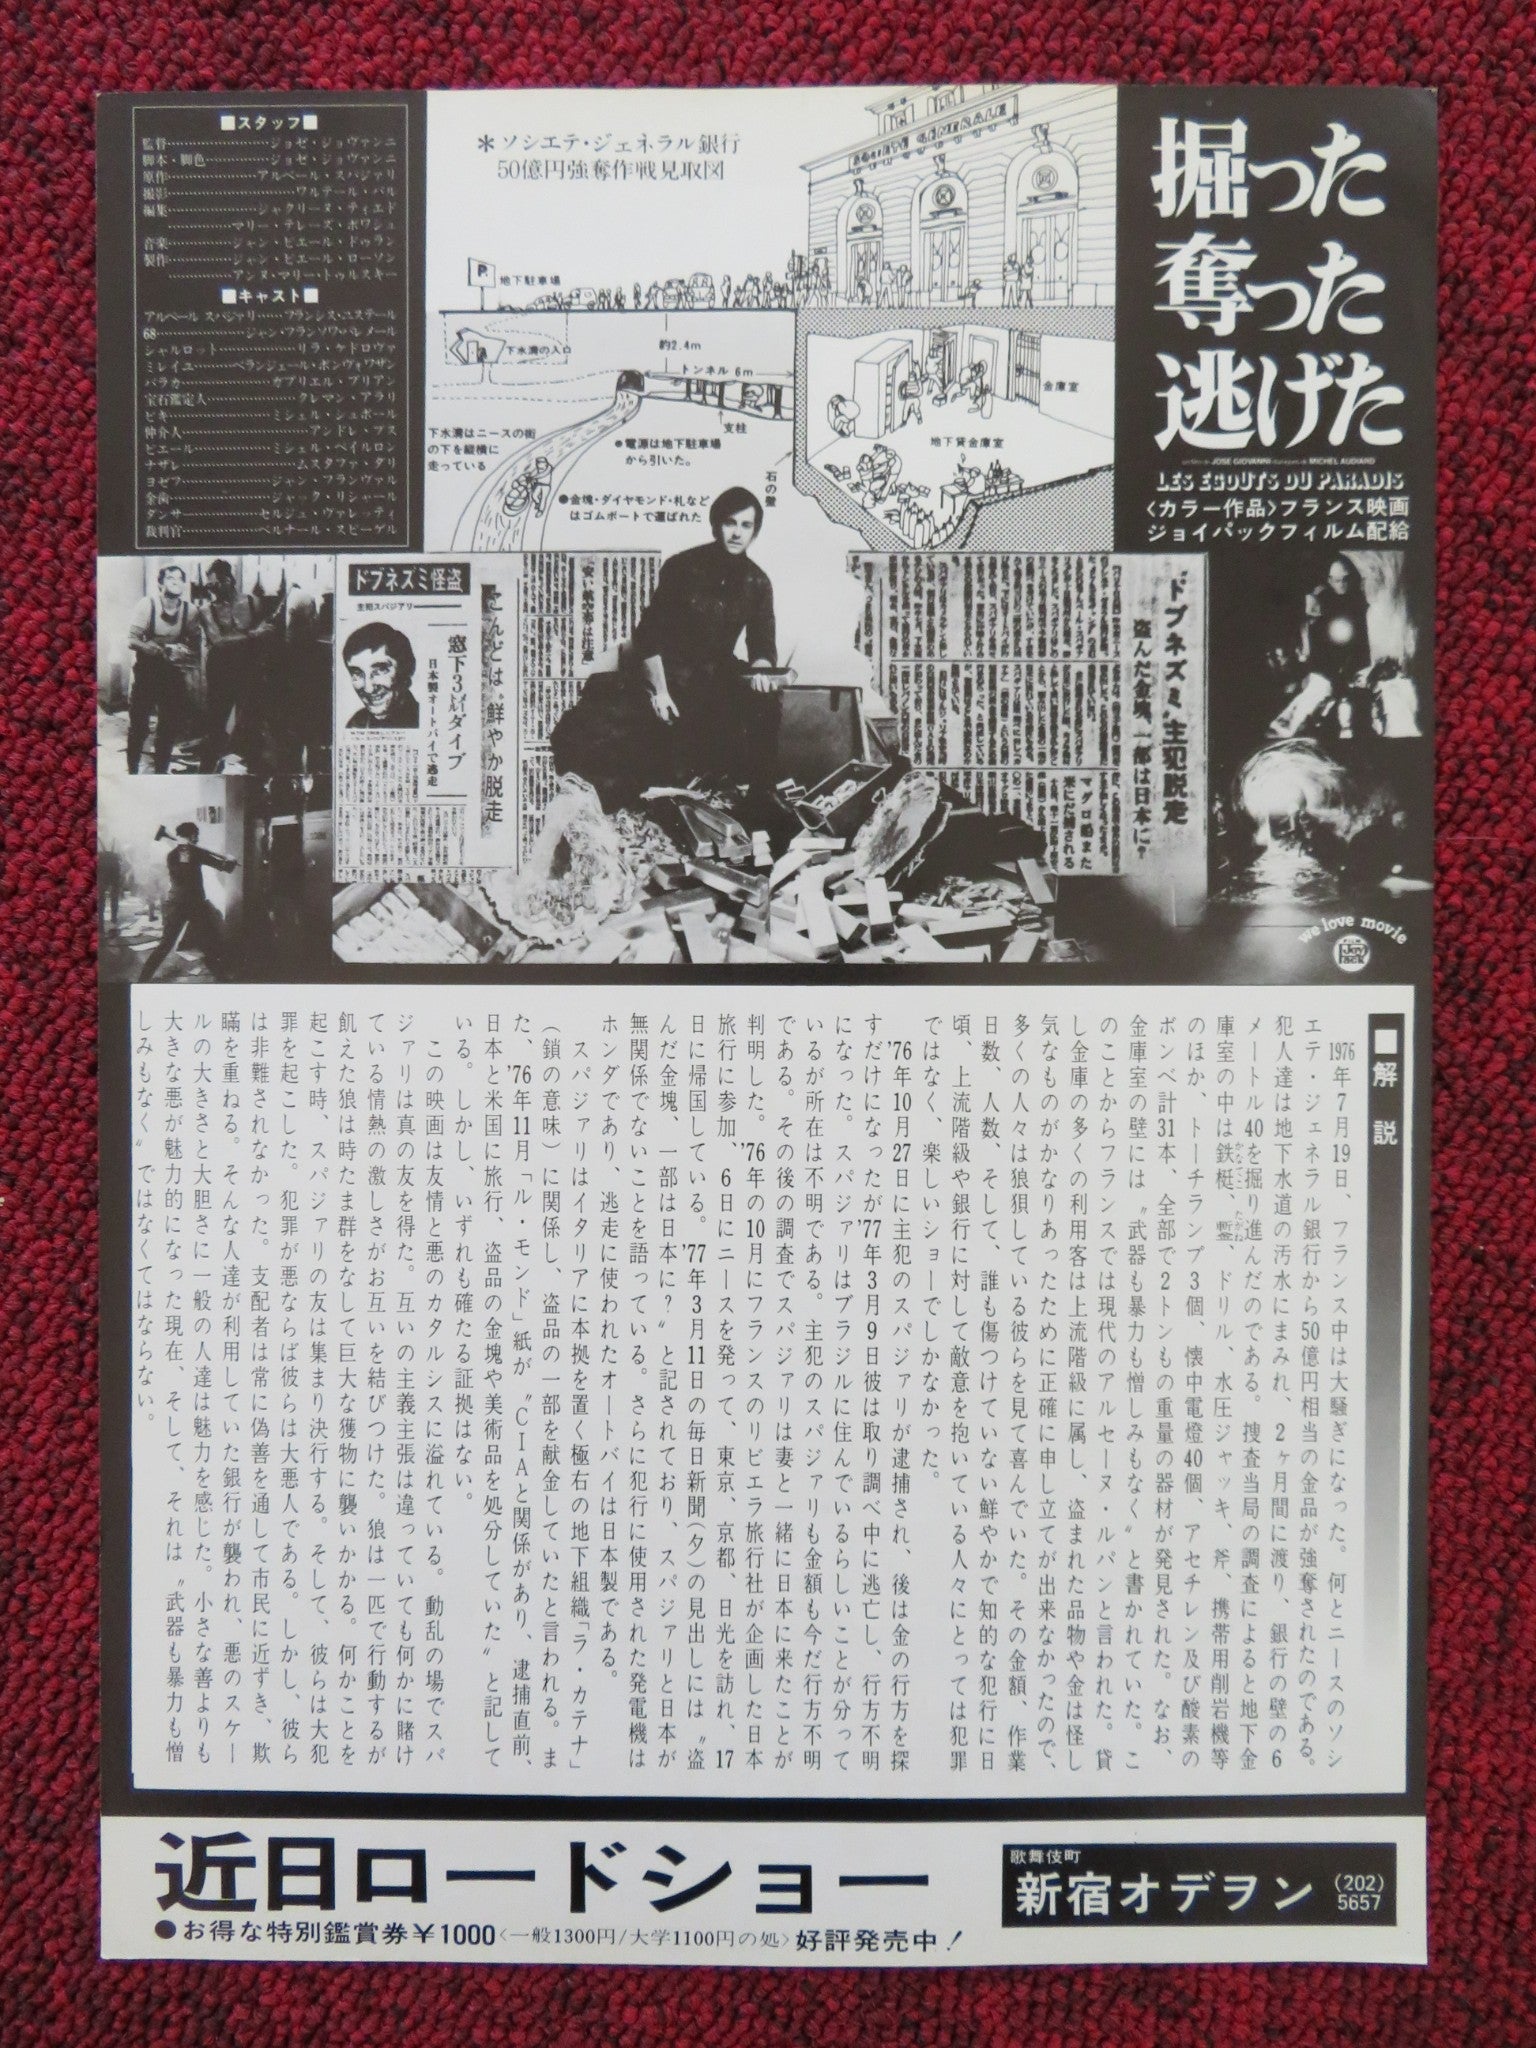 掘った
奪った
逃げた
un film de JOSE GIOVANNI dialogues de MICHEL AUDIARD
LES EGOUTS DU PARADIS
〈カラー作品〉フランス映画
ジョイパックフィルム配給
■スタッフ■
監督…………ジョゼ・ジョヴァンニ
脚本・脚色…………ジョゼ・ジョヴァンニ
原作…………アルベール・スパジァリ
撮影…………ワルテール・バル
編集…………ジャクリーヌ・ティエド
…………マリー・テレーズ・ボワシュ
音楽…………ジャン・ピエール・ドゥラン
製作…………ジャン・ピエール・ローソン
…………アンヌ・マリー・トゥルスキー
■キャスト■
アルベール スパジァリ……フランシス・ユステール
68…………ジャン・フランソワ・バルメール
シャルロット…………リラ・ケドロヴァ
ミレイユ……ベランジェール・ボンヴォワザン
バラカ…………ガブリエル・ブリアン
宝石鑑定人…………クレマン・アラリ
ビキ…………ミシェル・シュボール
仲介人…………アンドレ・プス
ピエール…………ミシェル・ペイルロン
ナザレ…………ムスタファ・ダリ
ヨゼフ…………ジャン・フランヴァル
金歯…………ジャック・リシャール
ダンサ…………セルジュ・ヴァレッティ
裁判官…………ベルナール・スピーゲル
＊ソシエテ・ジェネラル銀行
50億円強奪作戦見取図
SOCIETE GENERALE
P
地下駐車場
下水溝の入口
約2.4m
トンネル 6m
支柱
金庫室
地下貸金庫室
石の壁
下水溝はニースの街
の下を縦横に
走っている
●電源は地下駐車場
から引いた。
●金塊・ダイヤモンド・札など
はゴムボートで運ばれた
ドブネズミ怪盗
主犯スパジアリ
窓下3メートルダイブ
日本製オートバイで逃走
こんどは〝鮮やか脱走
ドブネズミ〟主犯脱走
盗んだ金塊、一部は日本に？
マグロ船また
米にだ捕される
we love movie
FILM
Joy
Pack
■解説
1976年7月19日、フランス中は大騒ぎになった。何とニースのソシ
エテ・ジェネラル銀行から50億円相当の金品が強奪されたのである。
犯人達は地下水道の汚水にまみれ、2ヶ月間に渡り、銀行の壁の6
メートル40を掘り進んだのである。捜査当局の調査によると地下金
庫室の中は鉄梃、鏨、ドリル、水圧ジャッキ、斧、携帯用削岩機等
かなてこ
たがね
のほか、トーチランプ3個、懐中電燈40個、アセチレン及び酸素の
ボンベ計31本、全部で2トンもの重量の器材が発見された。なお、
金庫室の壁には〝武器も暴力も憎しみもなく〟と書かれていた。こ
のことからフランスでは現代のアルセーヌ ルパンと言われた。貸
し金庫の多くの利用客は上流階級に属し、盗まれた品物や金は怪し
気なものがかなりあったために正確に申し立てが出来なかったので、
多くの人々は狼狽している彼らを見て喜んでいた。その金額、作業
日数、人数、そして、誰も傷つけていない鮮やかで知的な犯行に日
頃、上流階級や銀行に対して敵意を抱いている人々にとっては犯罪
ではなく、楽しいショーでしかなかった。
'76年10月27日に主犯のスパジァリが逮捕され、後は金の行方を探
すだけになったが'77年3月9日彼は取り調べ中に逃亡し、行方不明
になった。スパジァリはブラジルに住んでいるらしいことが分って
いるが所在は不明である。主犯のスパジァリも金額も今だ行方不明
である。その後の調査でスパジァリは妻と一緒に日本に来たことが
判明した。'76年の10月にフランスのリビエラ旅行社が企画した日本
旅行に参加、6日にニースを発って、東京、京都、日光を訪れ、17
日に帰国している。'77年3月11日の毎日新聞(夕)の見出しには〝盗
んだ金塊、一部は日本に？〟と記されており、スパジァリと日本が
無関係でないことを語っている。さらに犯行に使用された発電機は
ホンダであり、逃走に使われたオートバイは日本製である。
スパジァリはイタリアに本拠を置く極右の地下組織「ラ・カテナ」
(鎖の意味)に関係し、盗品の一部を献金していたと言われる。ま
た、'76年11月「ル・モンド」紙が〝CIAと関係があり、逮捕直前、
日本と米国に旅行、盗品の金塊や美術品を処分していた〟と記して
いる。しかし、いずれも確たる証拠はない。
この映画は友情と悪のカタルシスに溢れている。動乱の場でスパ
ジァリは真の友を得た。互いの主義主張は違っていても何かに賭け
ている情熱の激しさがお互いを結びつけた。狼は一匹で行動するが
飢えた狼は時たま群をなして巨大な獲物に襲いかかる。何かことを
起こす時、スパジァリの友は集まり決行する。そして、彼らは大犯
罪を起こした。犯罪が悪ならば彼らは大悪人である。しかし、彼ら
は非難されなかった。支配者は常に偽善を通して市民に近ずき、欺
瞞を重ねる。そんな人達が利用していた銀行が襲われ、悪のスケー
ルの大きさと大胆さに一般の人達は魅力を感じた。小さな善よりも
大きな悪が魅力的になった現在、そして、それは〝武器も暴力も憎
しみもなく〟ではなくてはならない。
近日ロードショー
●お得な特別鑑賞券￥1000〈一般1300円/大学1100円の処〉好評発売中！
歌舞伎町
新宿オデヲン
(202)
5657